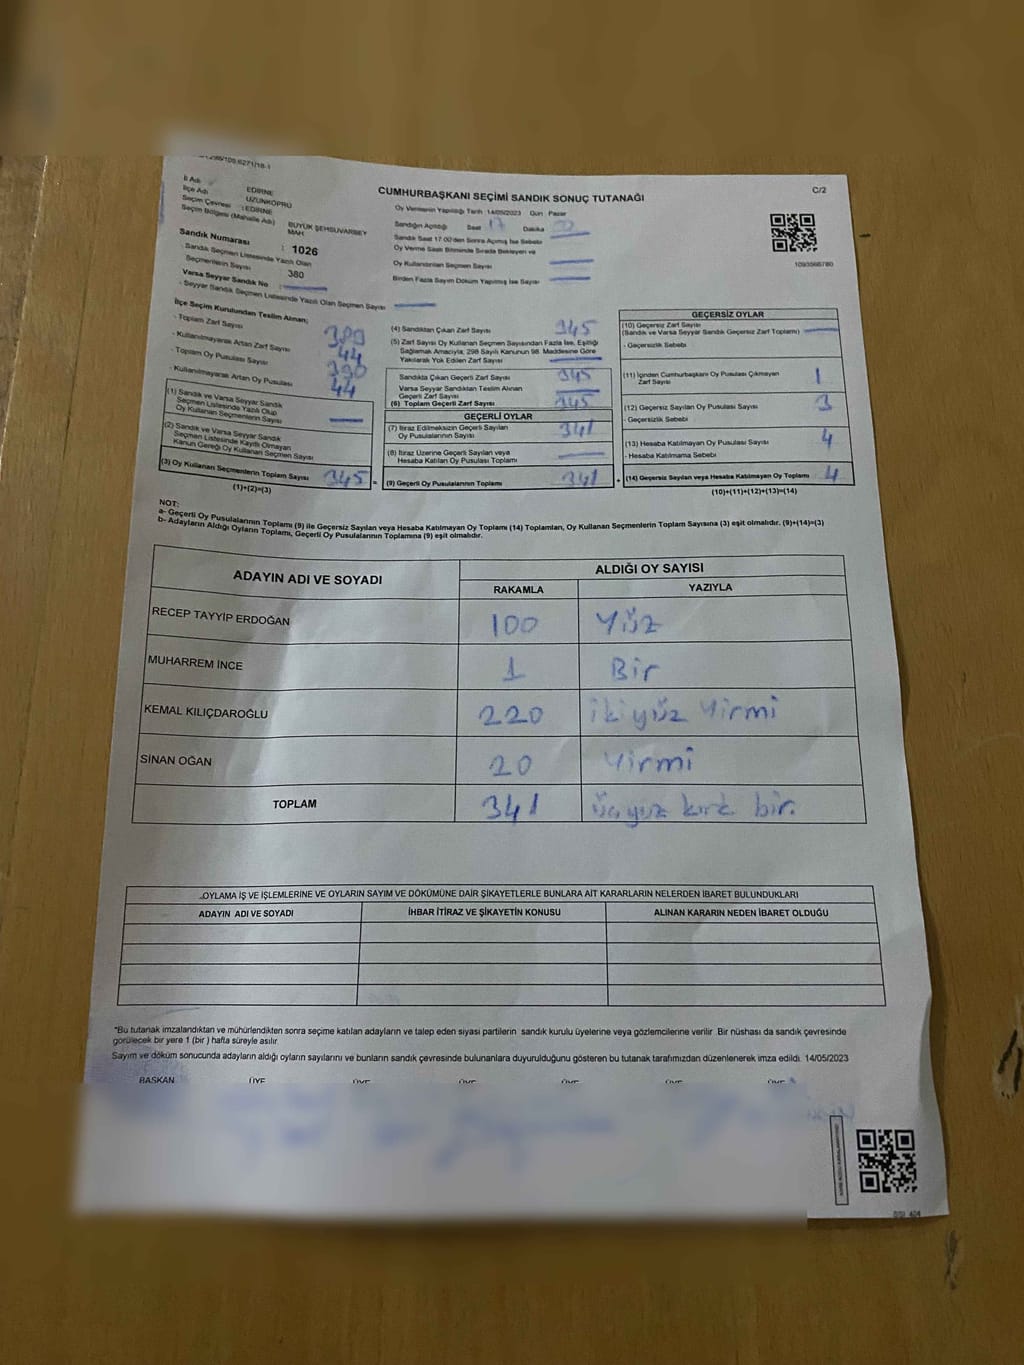 İl Adı
EDİRNE
İlçe Adı
UZUNKÖPRÜ
Seçim Çevresi : EDİRNE
Seçim Bölgesi (Mahalle Adı)
BÜYÜK ŞEHSUVARBEY
MAH.
Sandık Numarası : 1026
Sandık Seçmen Listesinde Yazılı Olan
Seçmenlerin Sayısı 380
Varsa Seyyar Sandık No :
- Seyyar Sandık Seçmen Listesinde Yazılı Olan Seçmen Sayısı
CUMHURBAŞKANI SEÇİMİ SANDIK SONUÇ TUTANAĞI
C/2
Oy Vermenin Yapıldığı Tarih 14/05/2023 Gün Pazar
Sandığın Açıldığı Saat 17 Dakika
Sandık Saat 17:00'den Sonra Açılmış İse Sebebi
Oy Verme Saati Bitiminde Sırada Bekleyen ve
Oy Kullandırılan Seçmen Sayısı
Birden Fazla Sayım Döküm Yapılmış İse Sayısı
1093566780
İlçe Seçim Kurulundan Teslim Alınan;
- Toplam Zarf Sayısı 389
- Kullanılmayarak Artan Zarf Sayısı 44
- Toplam Oy Pusulası Sayısı 390
- Kullanılmayarak Artan Oy Pusulası 44
(1) Sandık ve Varsa Seyyar Sandık
Seçmen Listesinde Yazılı Olup
Oy Kullanan Seçmenlerin Sayısı
(2) Sandık ve Varsa Seyyar Sandık
Seçmen Listesinde Kayıtlı Olmayan
Kanun Gereği Oy Kullanan Seçmen Sayısı
(3) Oy Kullanan Seçmenlerin Toplam Sayısı 345
(1)+(2)=(3)
(4) Sandıktan Çıkan Zarf Sayısı 345
(5) Zarf Sayısı Oy Kullanan Seçmen Sayısından Fazla İse, Eşitliği
Sağlamak Amacıyla, 298 Sayılı Kanunun 98. Maddesine Göre
Yakılarak Yok Edilen Zarf Sayısı
Sandıkta Çıkan Geçerli Zarf Sayısı 345
Varsa Seyyar Sandıktan Teslim Alınan
Geçerli Zarf Sayısı
(6) Toplam Geçerli Zarf Sayısı 345
GEÇERLİ OYLAR
(7) İtiraz Edilmeksizin Geçerli Sayılan
Oy Pusulalarının Sayısı 341
(8) İtiraz Üzerine Geçerli Sayılan veya
Hesaba Katılan Oy Pusulası Toplamı
= (9) Geçerli Oy Pusulalarının Toplamı 341 +
GEÇERSİZ OYLAR
(10) Geçersiz Zarf Sayısı
(Sandık ve Varsa Seyyar Sandık Geçersiz Zarf Toplamı)
- Geçersizlik Sebebi
(11) İçinden Cumhurbaşkanı Oy Pusulası Çıkmayan
Zarf Sayısı 1
(12) Geçersiz Sayılan Oy Pusulası Sayısı 3
- Geçersizlik Sebebi
(13) Hesaba Katılmayan Oy Pusulası Sayısı 4
- Hesaba Katılmama Sebebi
(14) Geçersiz Sayılan veya Hesaba Katılmayan Oy Toplamı 4
(10)+(11)+(12)+(13)=(14)
NOT:
a- Geçerli Oy Pusulalarının Toplamı (9) ile Geçersiz Sayılan veya Hesaba Katılmayan Oy Toplamı (14) Toplamları, Oy Kullanan Seçmenlerin Toplam Sayısına (3) eşit olmalıdır. (9)+(14)=(3)
b- Adayların Aldığı Oyların Toplamı, Geçerli Oy Pusulalarının Toplamına (9) eşit olmalıdır.
ADAYIN ADI VE SOYADI
ALDIĞI OY SAYISI
RAKAMLA YAZIYLA
RECEP TAYYİP ERDOĞAN 100 Yüz
MUHARREM İNCE 1 Bir
KEMAL KILIÇDAROĞLU 220 iki yüz Yirmi
SİNAN OĞAN 20 Yirmi
TOPLAM 341 üçyüz kırk bir.
.OYLAMA İŞ VE İŞLEMLERİNE VE OYLARIN SAYIM VE DÖKÜMÜNE DAİR ŞİKAYETLERLE BUNLARA AİT KARARLARIN NELERDEN İBARET BULUNDUKLARI
ADAYIN ADI VE SOYADI İHBAR İTİRAZ VE ŞİKAYETİN KONUSU ALINAN KARARIN NEDEN İBARET OLDUĞU
*Bu tutanak imzalandıktan ve mühürlendikten sonra seçime katılan adayların ve talep eden siyasi partilerin sandık kurulu üyelerine veya gözlemcilerine verilir. Bir nüshası da sandık çevresinde
görülecek bir yere 1 (bir ) hafta süreyle asılır.
Sayım ve döküm sonucunda adayların aldığı oyların sayılarını ve bunların sandık çevresinde bulunanlara duyurulduğunu gösteren bu tutanak tarafımızdan düzenlenerek imza edildi. 14/05/2023
BAŞKAN ÜYE ÜYE ÜYE ÜYE ÜYE ÜYE